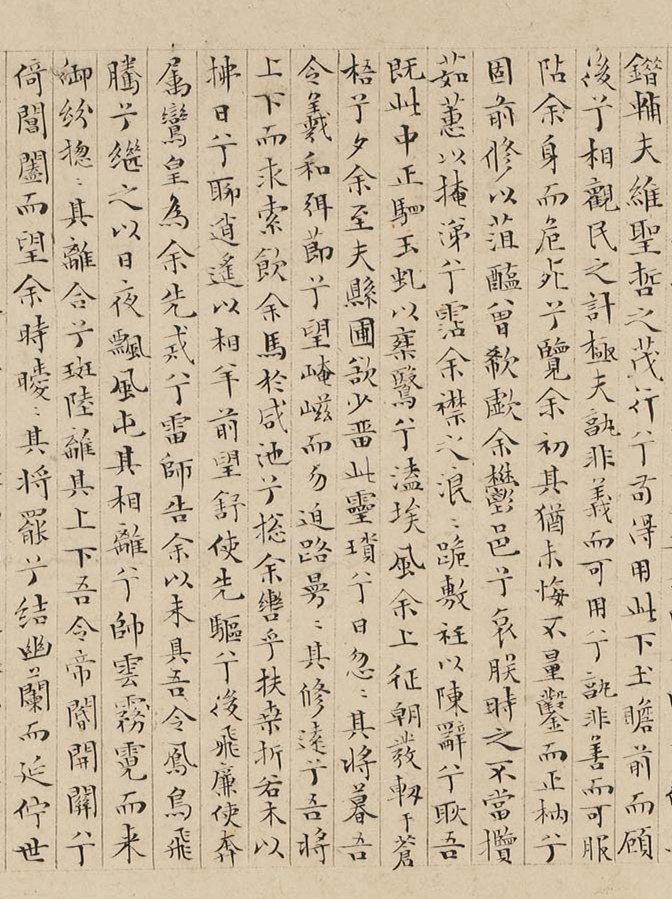 錯輔夫維聖哲之茂行兮苟得用此下土瞻前而顧
後兮相觀民之計極夫孰非義而可用兮孰非善而可服
阽余身而危死兮覽余初其猶未悔不量鑿而正枘兮
固前修以菹醢曾欷歔余鬱邑兮哀朕時之不當攬
茹蕙以掩涕兮霑余襟之浪〻跪敷衽以陳辭兮耿吾
既此中正駟玉虬以椉鷖兮溘埃風余上征朝發軔于蒼
梧兮夕余至夫縣圃欲少畱此靈瑣兮日忽〻其將暮吾
令羲和弭節兮望崦嵫而勿迫路曼〻其修遠兮吾將
上下而求索飲余馬於咸池兮揔余轡乎扶桑折若木以
拂日兮聊逍遙以相羊前望舒使先驅兮後飛廉使奔
屬鸞皇為余先戒兮雷師告余以未具吾令鳳鳥飛
騰兮繼之以日夜飄風屯其相離兮帥雲霧霓而來
御紛揔〻其離合兮斑陸離其上下吾令帝閽開關兮
倚閶闔而望余時曖〻其將罷兮結幽蘭而延佇世